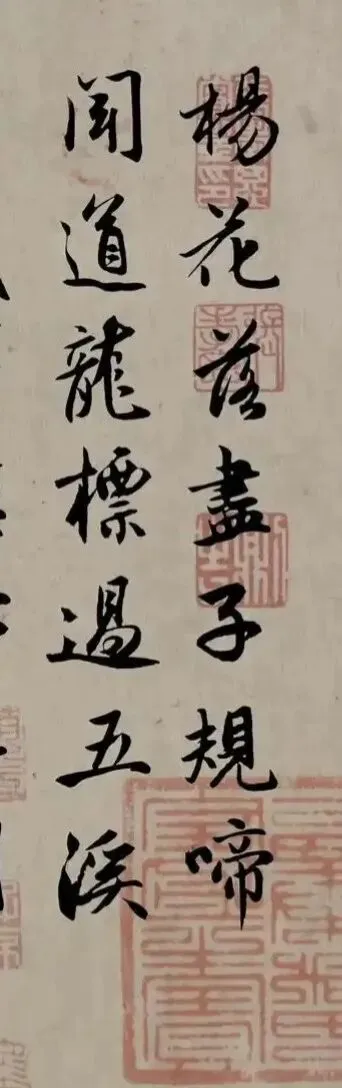 楊花落盡子規啼
聞道龍標過五溪